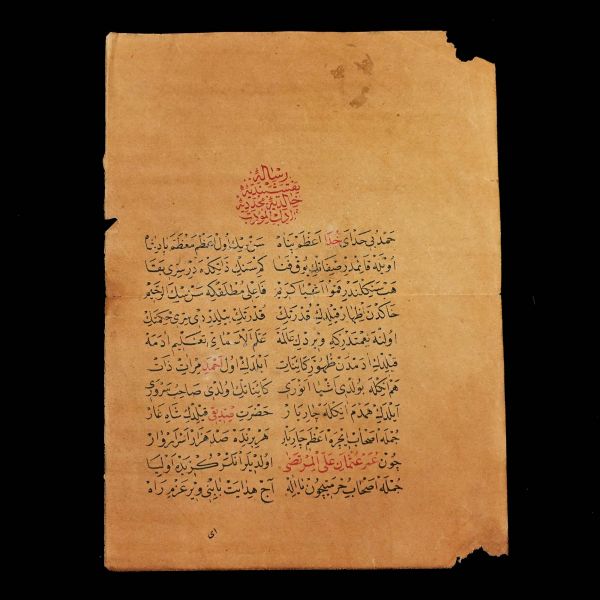 رسالهٔ
نقشبندیه
خالدیه مجددیه
حمد بی حد ای خدا اعظم پناه سن بیك اول یعظم معظم پادشاه
اویله قائمدر صفاتك یوق فنا كم سنك ذاتكده در سری بقا
هپ سنكدندر قمو اغنیا كریم فاعل مطلقكه سن بیك الرحیم
خاكدن اظهار قیلدك قدرتك قدرتك بیلدردی بزی حكمتك
اولنه نعمتدركه ویردك عالمه علم الاسماء تعلیم ادمه
قیلدك ادمدن ظهور كائنات ایلدك اول احمدی مرات ذات
هم انكله بولدی اشیا انوری كائناتك اولدی صاحب سروری
ایلدك همدم انكله چار یار حضرت صدیقی قیلدك شاه غار
جمله اصحاب ایچره اعظم چار یار هر برنده صد هزار اسرار وار
چون عمر عثمان علی المرتضی اولدیلر انلر كزیده اولیا
جمله اصحاب حرمیچون یا اله آچ هدایت بابنی ویر عزم راه
ای